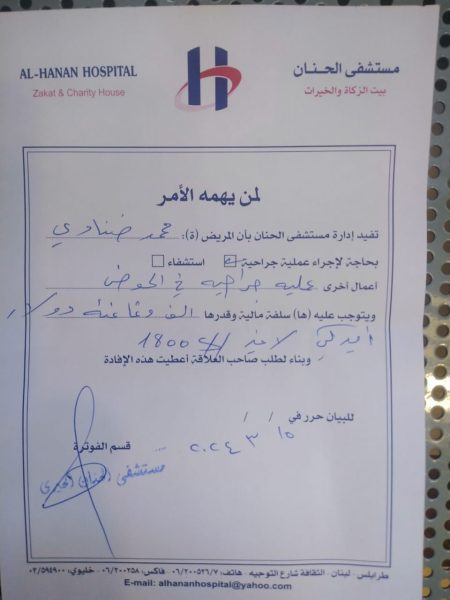 AL-HANAN HOSPITAL
Zakat & Charity House
مستشفى الحنان
بيت الزكاة والخيرات
لمن يهمه الأمر
تفيد إدارة مستشفى الحنان بأن المريض (ة): محمد ضناوي
بحاجة لإجراء عملية جراحية استشفاء
أعمال أخرى عملية جراحيه في الحوض
ويتوجب عليه (ها) سلفة مالية وقدرها الف وثمانمئة دولار
أميركي لا غير 1800
وبناء لطلب صاحب العلاقة أعطيت هذه الإفادة
للبيان حرر في / /
١٥ ٣ ٢٠٢٤
قسم الفوترة
مستشفى الحنان الخيري
طرابلس - لبنان - الثقافة شارع التوجيه - هاتف: ٠٦/٢٠٠٥٢٦/٧ - فاكس: ٠٦/٢٠٠٢٥٨ - خليوي: ٠٣/٥٩٤٩٠٠
E-mail: alhananhospital@yahoo.com